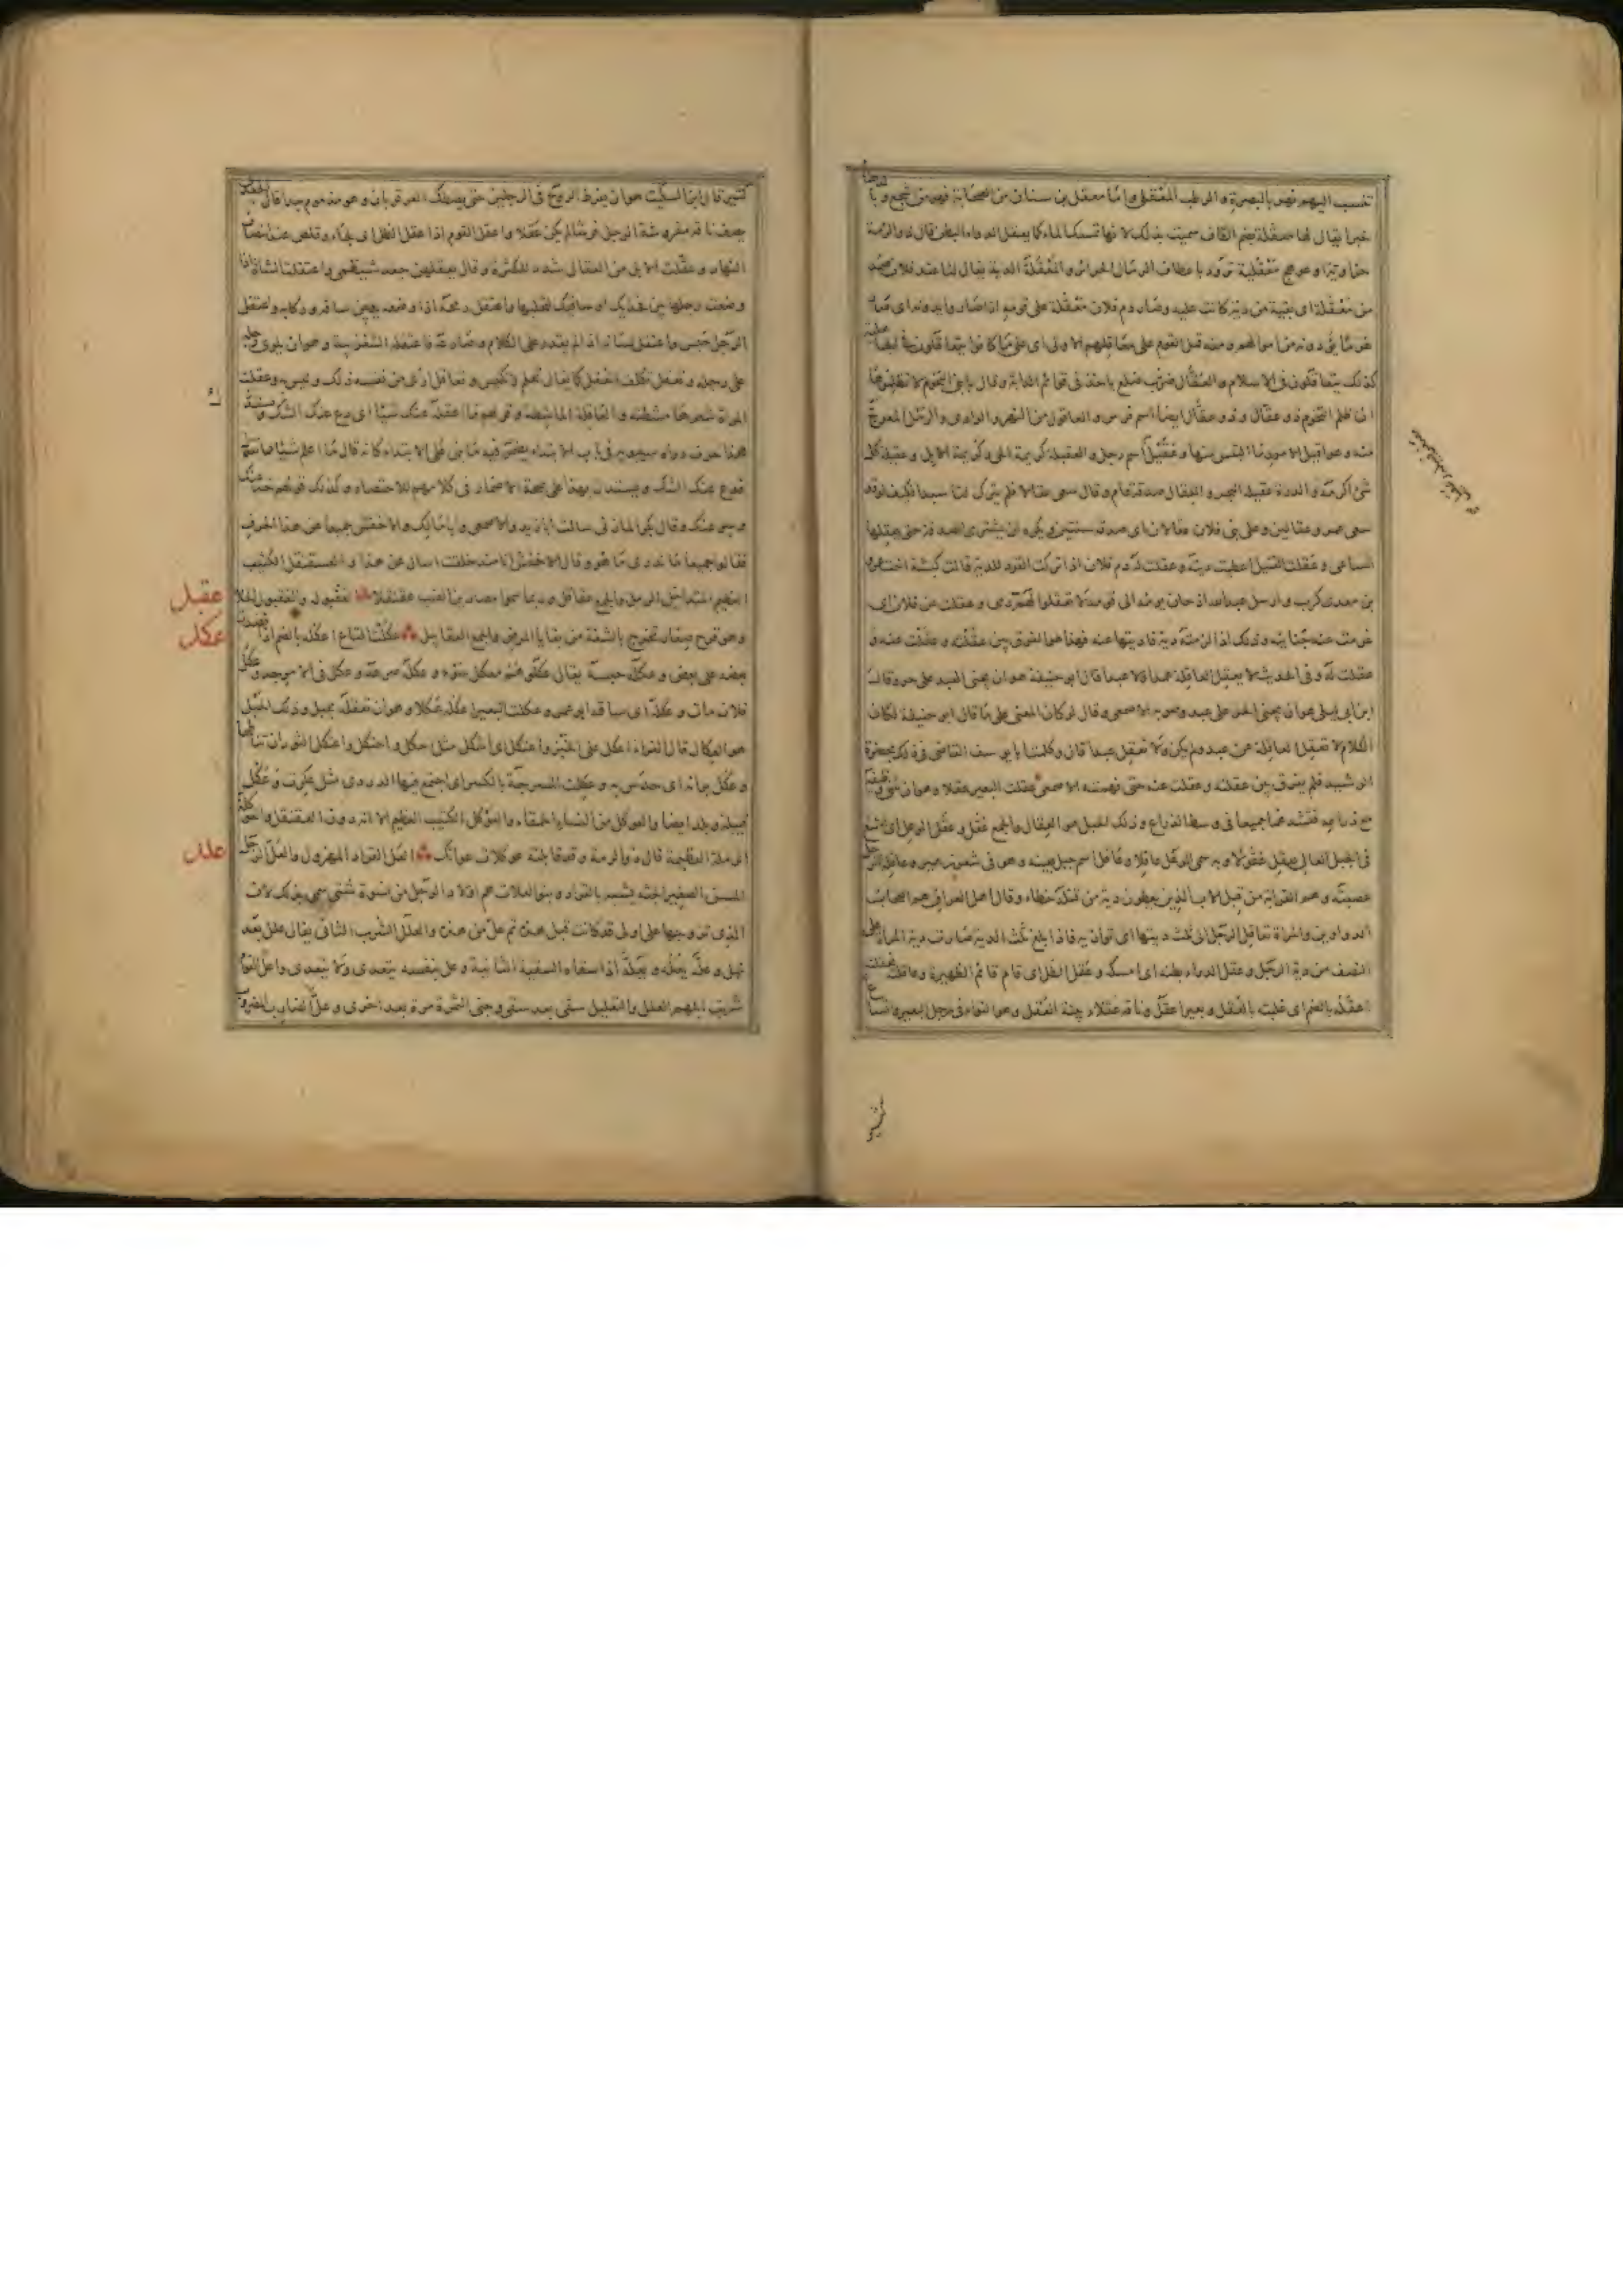 تنسب اليهم فهو بالبصرة والرطب المعقلي واما معقل بن سنان من الصحابة فهو من اشجع وبالدهنا
خبرا يقال لها معقلة بضم القاف سميت بذلك لانها تمسك الماء كما يعقل الدواء البطن قال ذو الرمة
وعوهج معقلية ترود باعطاف الرمال الحرائر والمعقلة الدية يقال لنا عند فلان ضمد
من معقلة اى بقية من دية كانت عليه وصار دم فلان معقلة على قومه اذا صاروا يدونه اى صار
غرما يؤدونه من اموالهم ومنه قيل القوم على معاقلهم الاولى اى على ما كانوا يتعاقلون فى الجاهلية
كذلك يتعاقلون فى الاسلام والعقال ضرب ظلع ياخذ فى قوائم الدابة وقال يا بنى التخوم لا تظلموها
ان ظلم التخوم ذو عقال وذو عقال ايضا اسم فرس والعاقول من النهر والوادى والرمل المعوج
منه وعواقيل الامور ما التبس منها وعقيل اسم رجل والعقيلة كريمة الحى وكريمة الابل وعقيلة كل
شئ اكرمه والدرة عقيلة البحر والعقال صدقة عام وقال سعى عقالا فلم يترك لنا سبدا فكيف لو قد
سعى عمرو عقالين وعلى بنى فلان عقالان اى صدقة سنتين ويكره ان يشترى الصدقة حتى يعقلها
الساعى وعقلت القتيل اعطيت ديته وعقلت له دم فلان اذا تركت القود للدية قالت كبشة اخت عمرو
بن معدى كرب وارسل عبد الله اذ حان يومه الى قومه لا تعقلوا لهم دمى وعقلت عن فلان اى
غرمت عنه جنايته وذلك اذا لزمته دية فاديتها عنه فهذا هو الفرق بين عقلته وعقلت عنه و
عقلت له وفى الحديث لا يعقل العاقلة عمدا ولا عبدا قال ابو حنيفة هو ان يجنى العبد على حر وقال
ابن ابى ليلى هو ان يجنى الحر على عبد وصوبه الاصمعى وقال لو كان المعنى على ما قال ابو حنيفة لكان
الكلام لا تعقل العاقلة عن عبد ولم يكن ولا تعقل عبدا قال وكلمت ابا يوسف القاضى فى ذلك بحضرة
الرشيد فلم يفرق بين عقلته وعقلت عنه حتى فهمته الاصمعى عقلت البعير عقلا وهو ان تثنى وظيفه
مع ذراعه فتشده هما جميعا فى وسط الذراع وذلك الحبل هو العقال والجمع عقل وعقل الوعل اى امتنع
فى الجبل العالى يعقل عقولا وبه سمى الوعل عاقلا وعاقل اسم جبل بعينه وهو فى شعر زهير وعاقلة الرجل
عصبته وهم القرابة من قبل الاب الذين يعطون دية من قتله خطاء وقال اهل العراق هم اصحاب
الدواوين والمراة تعاقل الرجل الى ثلث ديتها اى توازيه فاذا بلغ ثلث الدية صارت دية المراة على
النصف من دية الرجل وعقل الدواء بطنه اى امسكه وعقل الظل اى قام قائم الظهيرة وعاقلته فعقلته
اعقله بالضم اى غلبته بالعقل وبعير اعقل وناقة عقلاء بينة العقل وهو التواء فى رجل البعير واتساع
كثير قال ابن السكيت هو ان يفرط الروح فى الرجلين حتى يصطك العرقوبان وهو مذموم قال الجعدى
مفروشة الرجل فرشا لم يكن عقلا واعقل القوم اذا عقل الظل اى لجاء وقلص عند انتصاف
النهار وعقلت الابل من العقال شدد للكثرة وقال يعقلهن جعد شيظمى واعتقلت الشاة اذا
وضعت رجلها بين فخذيك او ساقيك لتحلبها واعتقل رمحه اذا وضعه بين ساقه وركابه واعتقل
الرجل حبس واعتقل لسانه اذا لم يقدر على الكلام وصارعه فاعتقله الشغزبية وهو ان يلوى رجله
على رجله وتعقل تكلف العقل كما يقال تحلم وتكيس وتعاقل ارى من نفسه ذلك وليس به وعقلت
المراة شعرها مشطته والعاقلة الماشطة وقولهم ما اعقله عنك شيئا اى دع عنك الشك
هذا حرف رواه سيبويه فى باب الابتداء يضمر فيه ما بنى على الابتداء كانه قال ما اعلم شيئا مما تقول
فدع عنك الشك ويستدل بهذا على صحة الاضمار فى كلامهم للاختصار وكذلك قولهم خذ عنك
وسر عنك وقال بكر المازنى سالت ابا زيد والاصمعى وابا مالك والاخفش جميعا عن هذا الحرف
فقالوا جميعا ما ندرى ما هو وقال الاخفش انا منذ خلقت اسال عن هذا والعقنقل الكثيب
العظيم المتداخل الرمل والجمع عقاقل وربما سموا مصارين الضب عقنقلا العقبول والعقبولة الحلاء
وهو قروح صغار تخرج بالشفة من بقايا المرض والجمع العقابيل عكلت المتاع اعكله بالضم اذا نضدت
بعضه على بعض وعكله حبسه يقال عكلوهم معكل سوء وعكله صرعه وعكل فى الامر جد وعكل
فلان مات وعكله اى ساقه ابو عمرو عكلت البعير اعكله عكلا وهو ان تعقله بحبل وذلك الحبل
هو العكال قال الفراء اعكل على الخبر واعتكل اى اشكل مثل حكل واحتكل واعتكل الثوران تناطحا
وعكل برايه اى حدس به وعكلت المسرجة بالكسر اى اجتمع فيها الدردى مثل عكرت وعكل
قبيلة وبلد ايضا والعوكل من النساء الحمقاء والعوكل الكثيب العظيم الا انه دون العقنقل والعوكلة
الرملة العظيمة قال ذو الرمة وقد قابلته عوكلات عوانك العل القراد المهزول والعل الرجل
المسن الصغير الجثة يشبه بالقراد وبنو العلات هم اولاد الرجل من نسوة شتى سمى بذلك لان
الذى تزوجها على اولى قد كانت قبل هذه ثم عل من هذه والعلل الشرب الثانى يقال علل بعد
نهل وعله يعله ويعله اذا سقاه السقية الثانية وعل بنفسه يتعدى ولا يتعدى واعل القوم
شربت ابلهم العلل والتعليل سقى بعد سقى وجنى الثمرة مرة بعد اخرى وعل الضارب المضروب
عقبل
عكل
علل